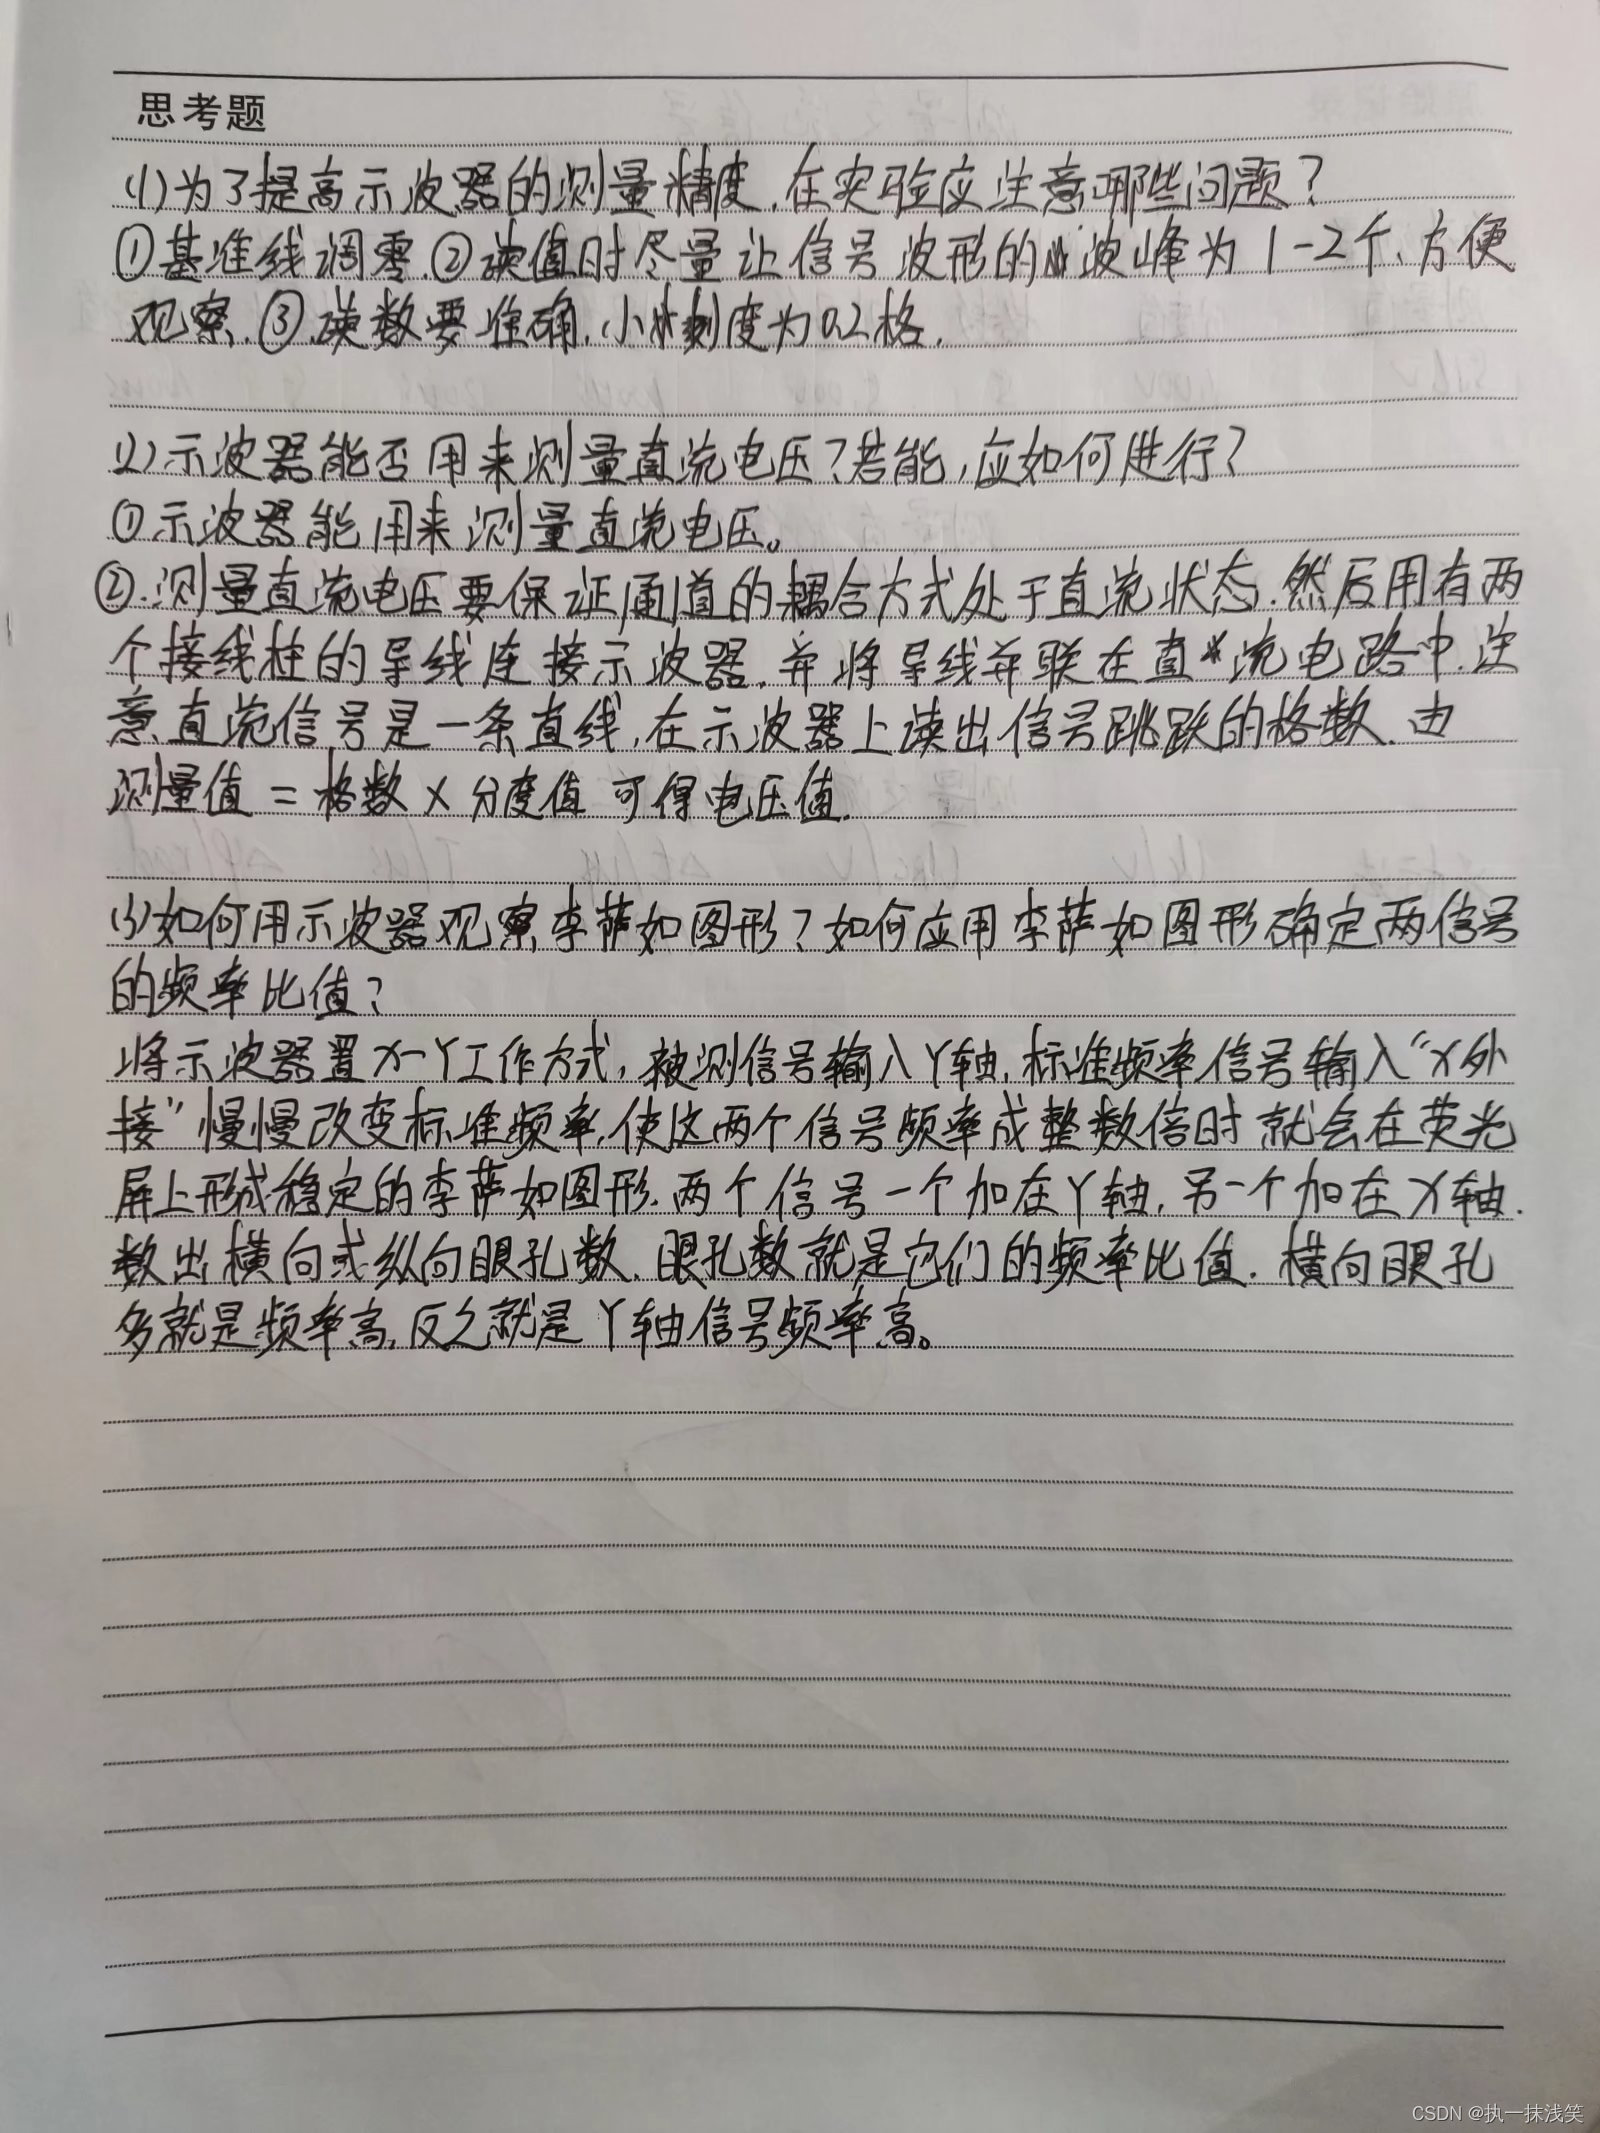 思考题
(1)为了提高示波器的测量精度.在实验应注意哪些问题?
①基准线调零.②读值时尽量让信号波形的波峰为1-2个、方便
观察.③.读数要准确.小刻度为0.2格.
(2)示波器能否用来测量直流电压?若能,应如何进行?
①示波器能用来测量直流电压。
②.测量直流电压要保证通道的耦合方式处于直流状态.然后用有两
个接线柱的导线连接示波器.并将导线并联在直流电路中.注
意直流信号是一条直线,在示波器上读出信号跳跃的格数.由
测量值=格数×分度值可得电压值.
(3)如何用示波器观察李萨如图形?如何应用李萨如图形确定两信号
的频率比值?
将示波器置X-Y工作方式,被测信号输入Y轴.标准频率信号输入“X外
接”慢慢改变标准频率,使这两个信号频率成整数倍时就会在荧光
屏上形成稳定的李萨如图形.两个信号一个加在Y轴,另一个加在X轴.
数出横向或纵向眼孔数.眼孔数就是它们的频率比值.横向眼孔
多就是频率高,反之就是Y轴信号频率高。
CSDN @执一抹浅笑